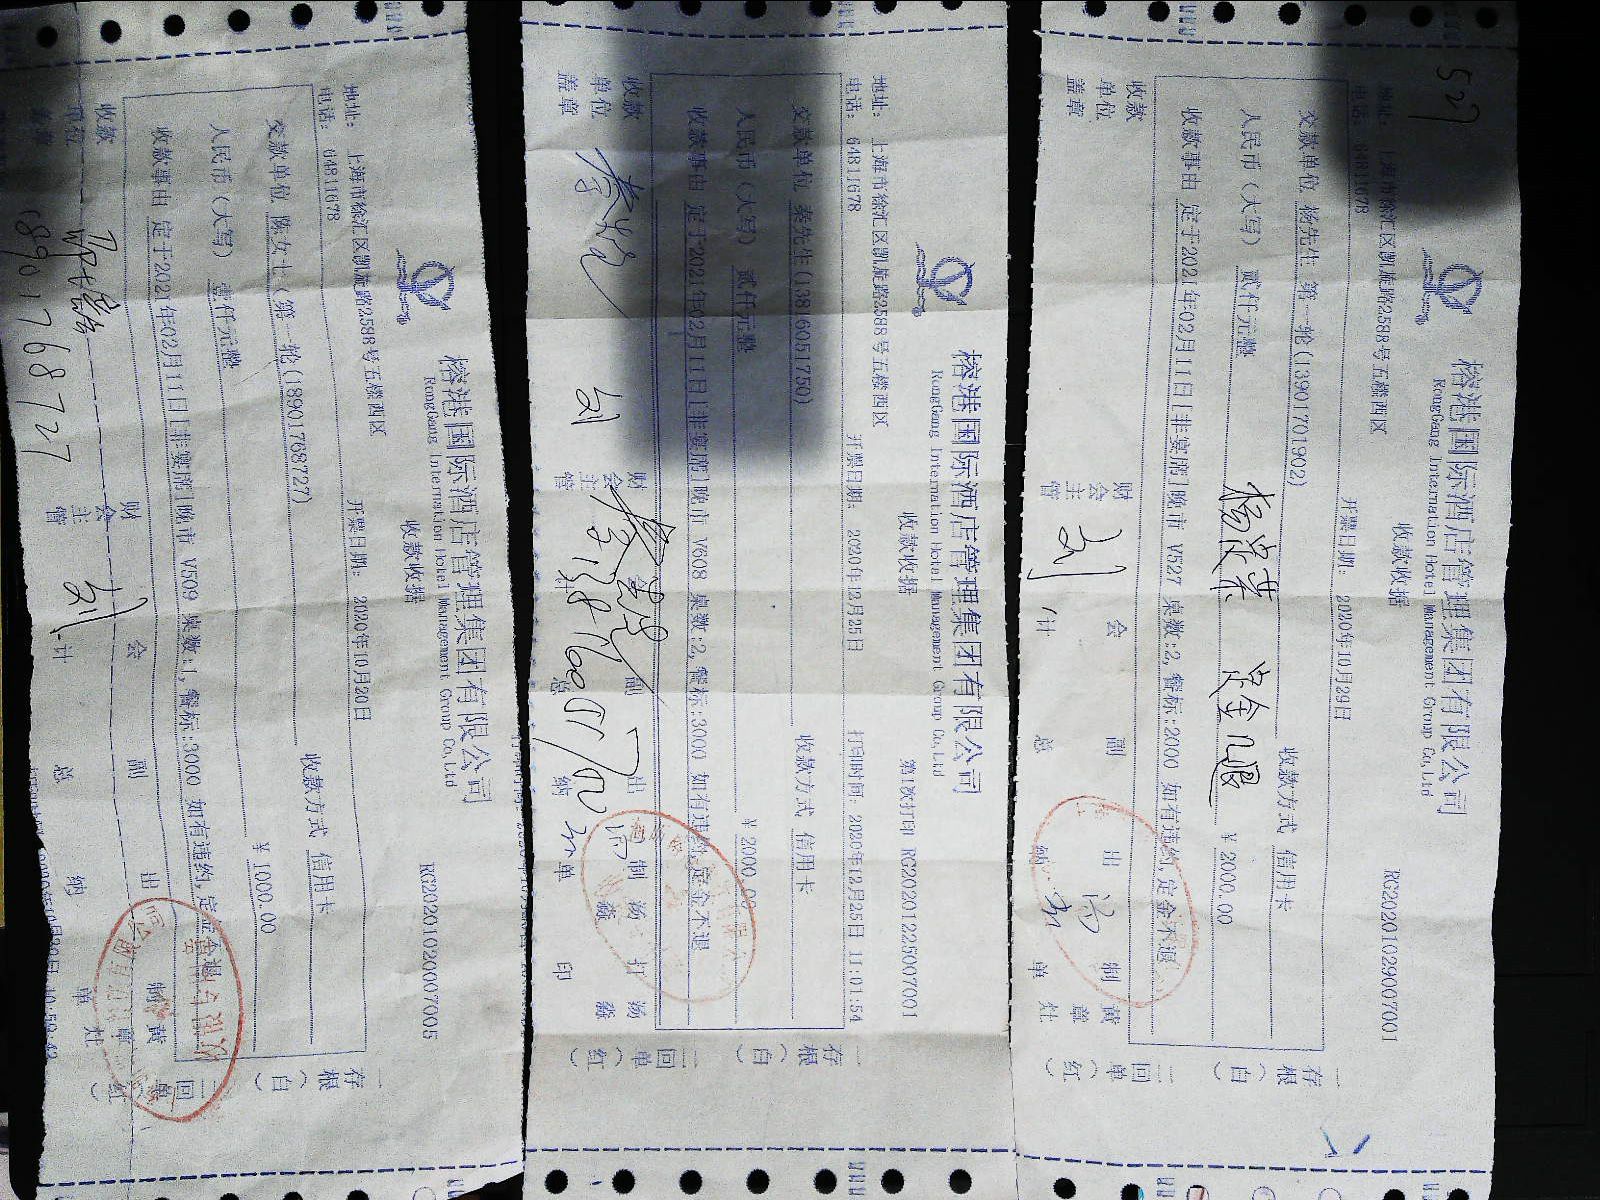 榕港国际酒店管理集团有限公司
RongGang International Hotel Management Group Co,Ltd
收款收据
RG20201029007001
527
地址: 上海市徐汇区凯旋路2588号五楼西区
电话: 64811678
开票日期: 2020年10月29日
交款单位 杨先生 第一轮(13901701902)
收款方式 信用卡
人民币(大写) 贰仟元整
¥ 2000.00
定金已退
收款事由 定于2021年02月11日[非宴厅]晚市 V527 桌数:2,餐标:2000 如有违约,定金不退
收款单位盖章
财会主管
会计
副总
出纳
制单
黄章灶
一存根(白)
二回单(红)
榕港国际酒店管理集团有限公司
RongGang International Hotel Management Group Co,Ltd
收款收据
第1次打印 RG20201225007001
地址: 上海市徐汇区凯旋路2588号五楼西区
电话: 64811678
开票日期: 2020年12月25日
打印时间: 2020年12月25日 11:01:54
交款单位 秦先生(13816051750)
收款方式 信用卡
人民币(大写) 贰仟元整
¥ 2000.00
收款事由 定于2021年02月11日[非宴厅]晚市 V608 桌数:2,餐标:3000 如有违约,定金不退
收款单位盖章
财会主管
会计
副总
出纳
制单
汤淼
打印
汤淼
13816051750
一存根(白)
二回单(红)
榕港国际酒店管理集团有限公司
RongGang International Hotel Management Group Co,Ltd
收款收据
RG20201020007005
地址: 上海市徐汇区凯旋路2588号五楼西区
电话: 64811678
开票日期: 2020年10月20日
交款单位 陈女士(第一轮(18901768727)
收款方式 信用卡
人民币(大写) 壹仟元整
¥ 1000.00
收款事由 定于2021年02月11日[非宴厅]晚市 V509 桌数:1,餐标:3000 如有违约,定金不退
收款单位盖章
财会主管
会计
副总
出纳
制单
黄章灶
18901768727
一存根(白)
二回单(红)